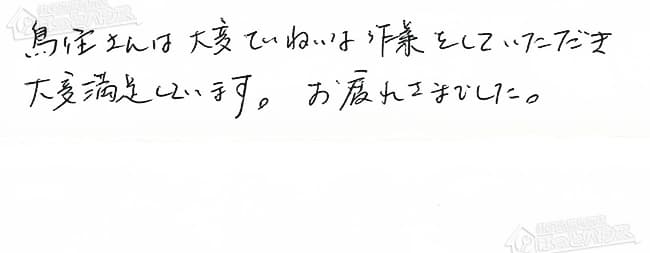 鳥住さんは大変ていねいな作業をしていただき
大変満足しています。 お疲れさまでした。